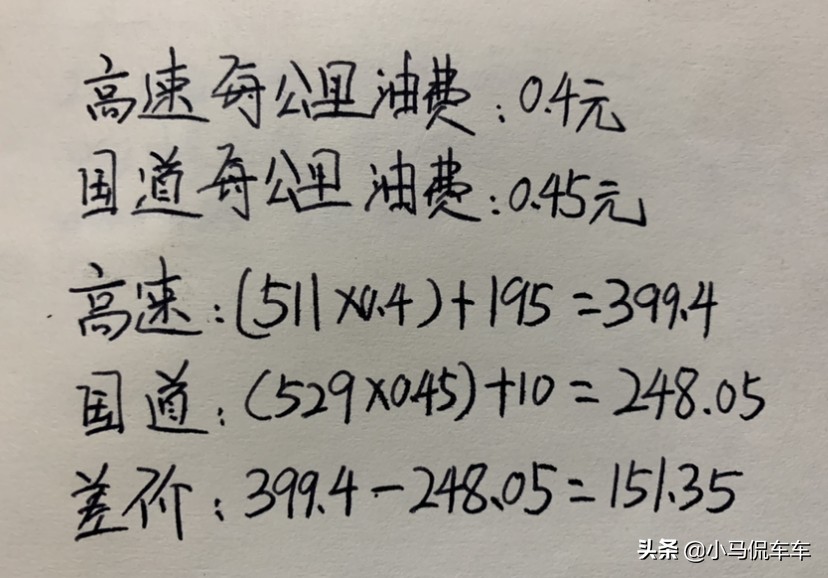 高速每公里油费:0.4元
国道每公里油费:0.45元
高速:(511×0.4)+195=399.4
国道:(529×0.45)+10=248.05
差价:399.4-248.05=151.35
头条 @小马侃车车